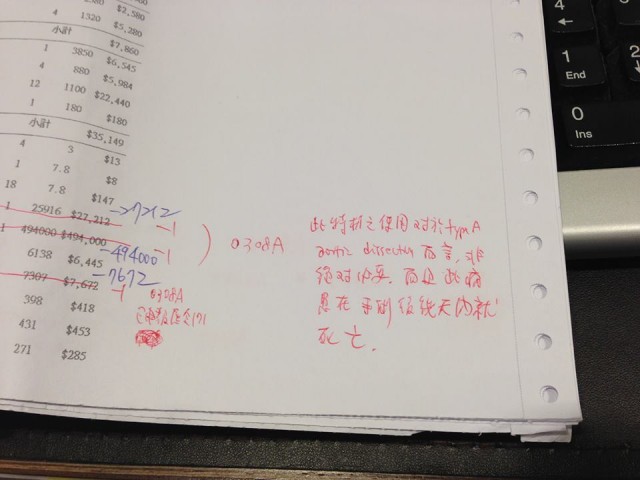 $2,580
4 1320 $5,280
小計 $7,860
1 3850 $6,545
4 880 $5,984
12 1100 $22,440
1 180 $180
小計 $35,149
4 3 $13
1 7.8 $8
18 7.8 $147
1 25916 $27,212
-1
1 494000 $494,000 -494000 -1
) 0308A
6138 $6,445
7307 $7,672 -7672
-1
398 $418
0308A
431 $453
271 $285
此特材之使用對於type A
aortic dissection 而言,非
絕對必要。而且此病
患在 天內就
死亡.
4
←
1
End
2
0
Ins